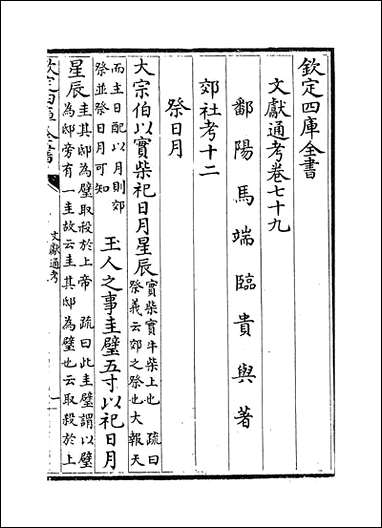 欽定四庫全書
文獻通考卷七十九
鄱陽馬端臨貴與著
郊社考十二
祭日月
大宗伯以實柴祀日月星辰實柴實牛柴上也 疏曰
祭義云郊之祭也大報天
而主日配以月則郊
祭並祭日月可知
玉人之事圭璧五寸以祀日月
星辰圭其邸為璧取殺於上帝 疏曰此圭璧謂以璧
為邸旁有一圭故云圭其邸為璧也云取殺於上
欽定四庫全書
文獻通考
一